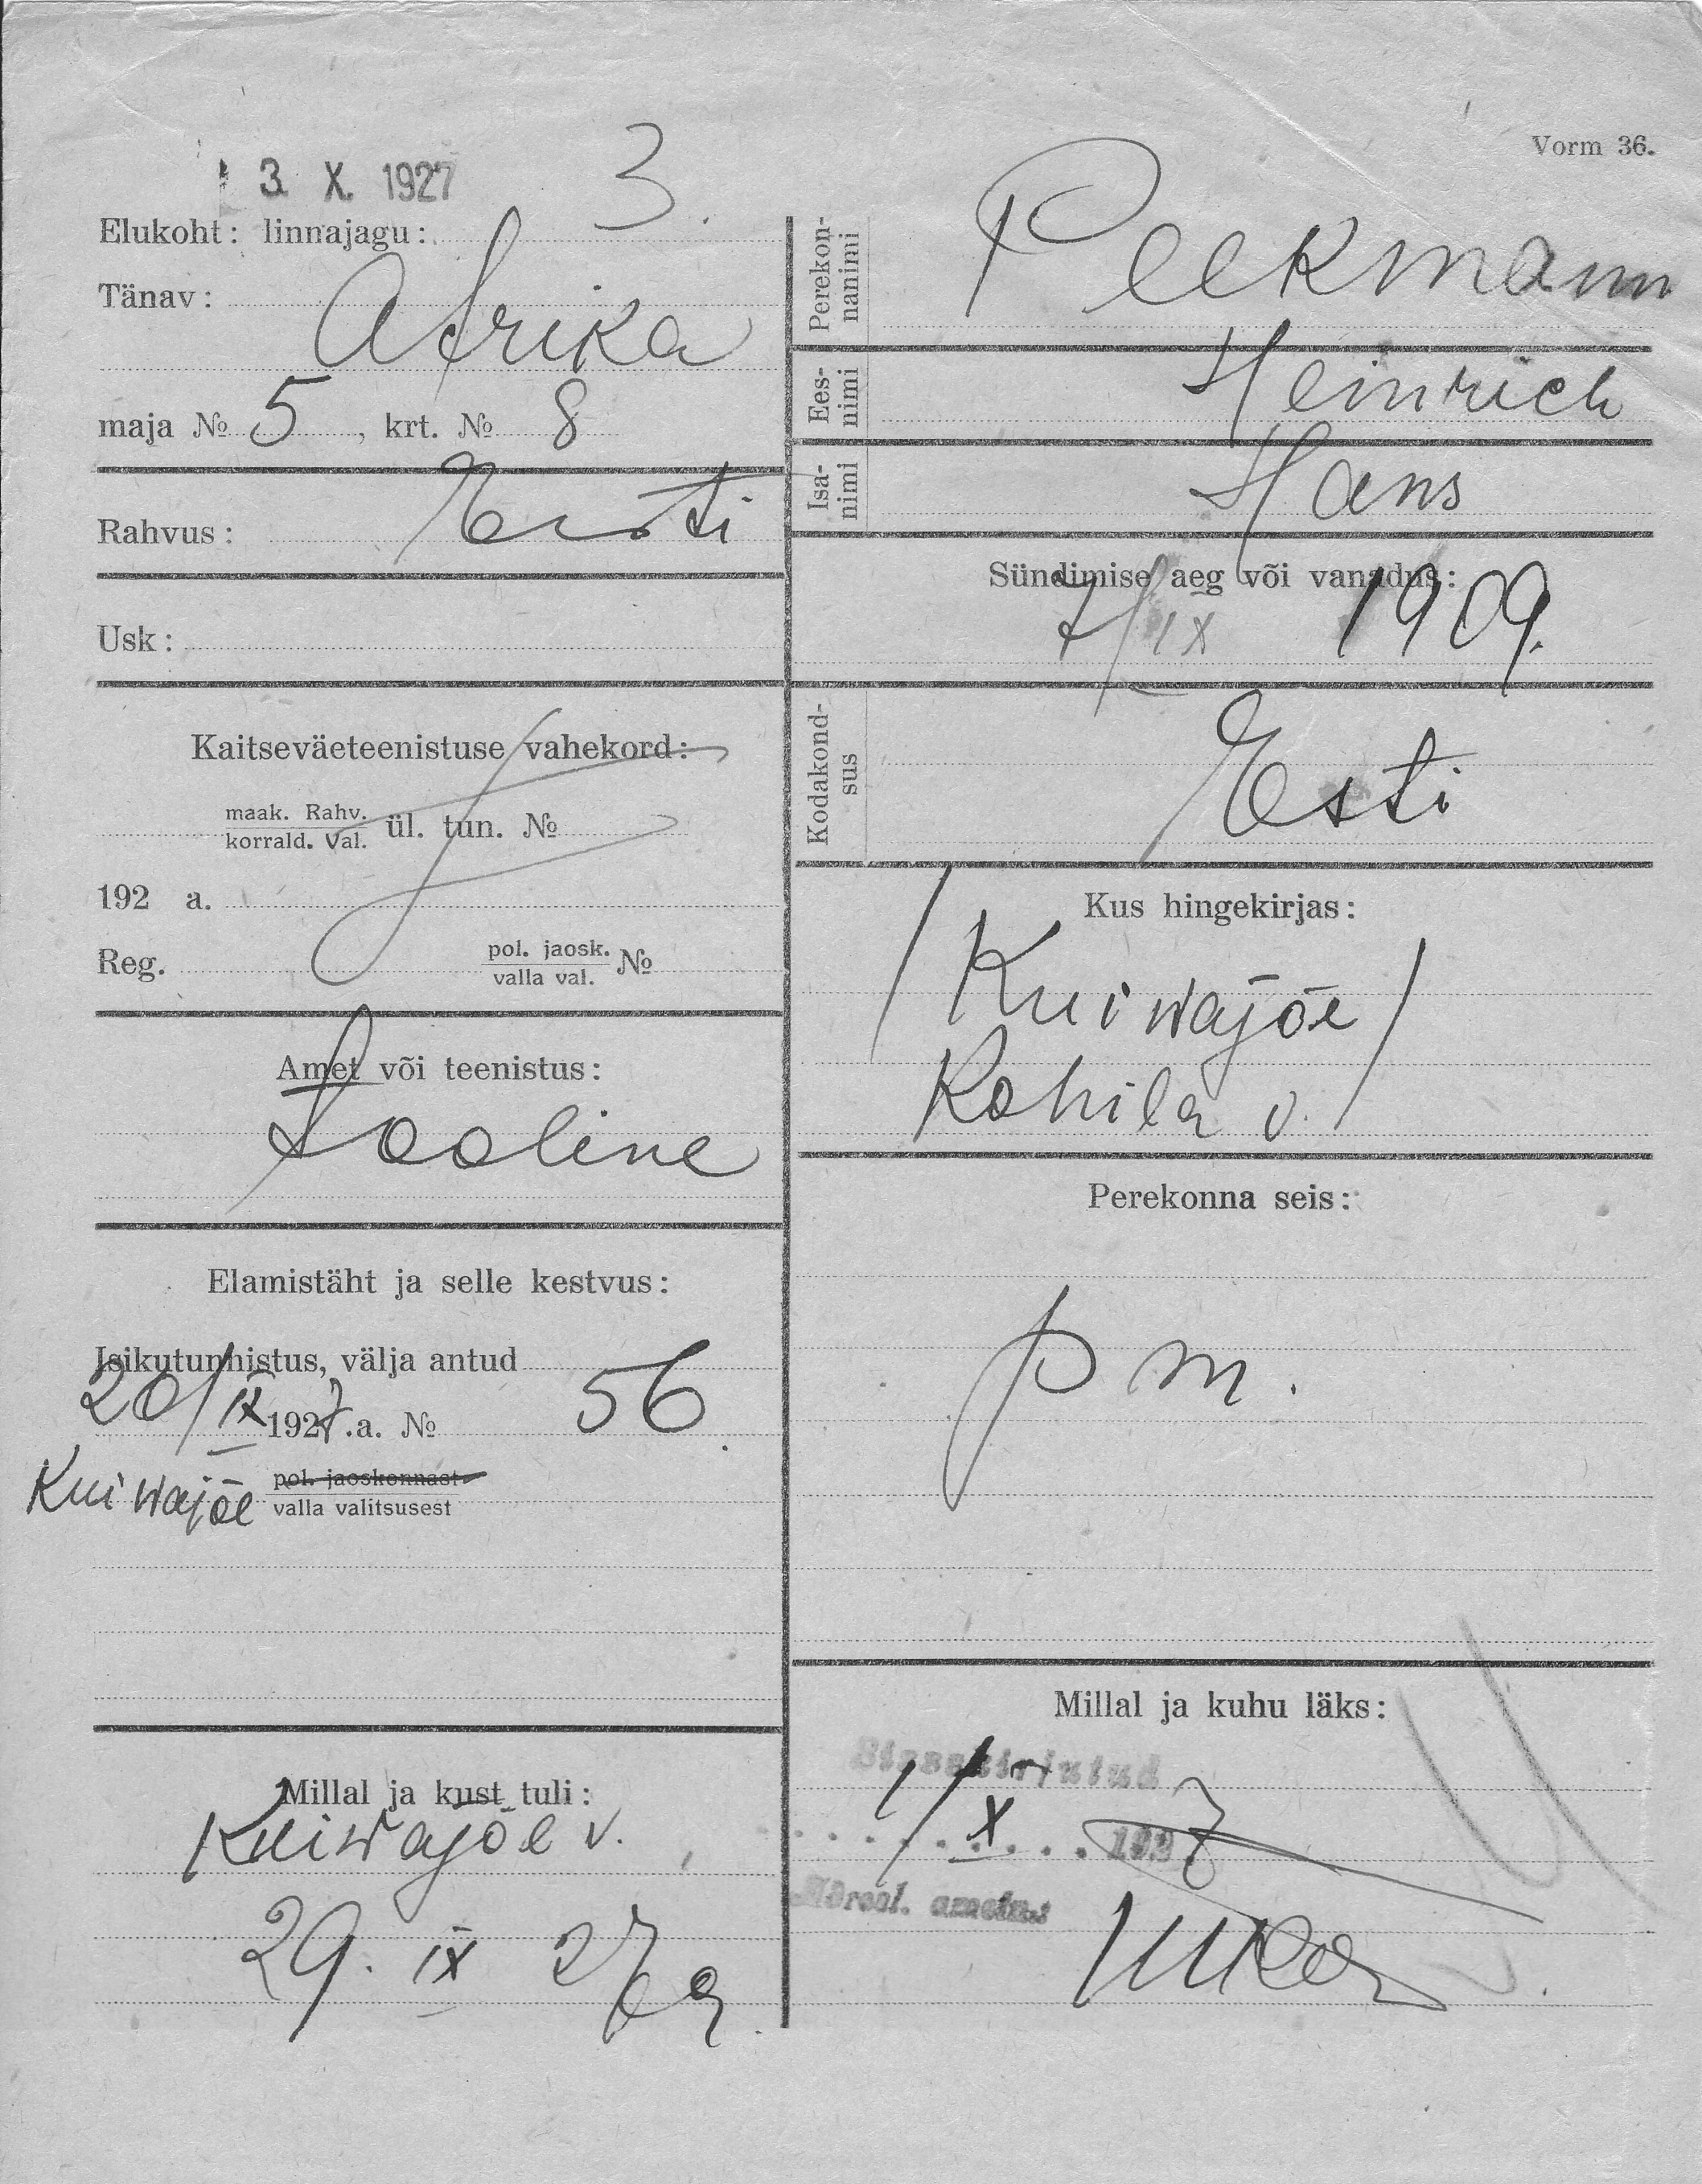 Vorm 36.
3. X. 1927
Elukoht: linnajagu: 3.
Tänav: Afrika
maja № 5, krt. № 8
Rahvus: Eesti
Usk:
Kaitseväeteenistuse vahekord:
maak. Rahv.
korrald. Val. ül. tun. №
192 a.
Reg. pol. jaosk.
valla val. №
Amet või teenistus:
Tööline
Elamistäht ja selle kestvus:
Isikutunnistus, välja antud
20/IX 1927.a. № 56.
Kuiwajõe pol. jaoskonnast
valla valitsusest
Millal ja kust tuli:
Kuiwajõe v.
29. IX 27 a
Perekonnanimi
Peekmann
Eesnimi
Heinrich
Isanimi
Hans
Sündimise aeg või vanadus:
7/IX 1909.
Kodakondsus
Esti
Kus hingekirjas:
/ Kuiwajõe /
Kohila v.
Perekonna seis:
p m.
Millal ja kuhu läks:
Sissekirjutud
1/X 1927